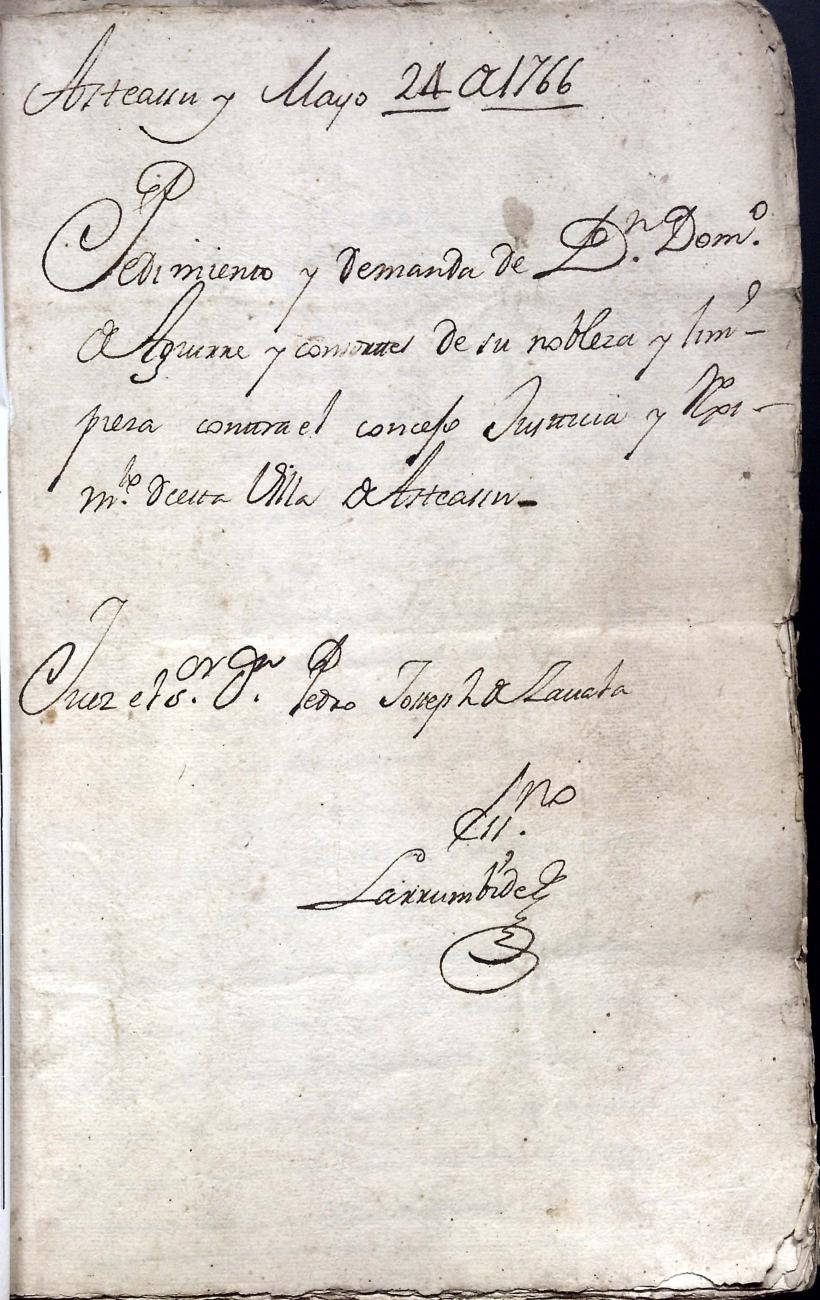 Asteassu y Mayo 24 de 1766
Pedimiento y demanda de Dn. Domo.
de Aguirre y consortes de su nobleza y lim-
pieza contra el consejo Justicia y Rexi-
mto. de esta Villa de Asteassu
Juez el Sor. Dn. Pedro Joseph de Zavala
Essno.
Larrumbide